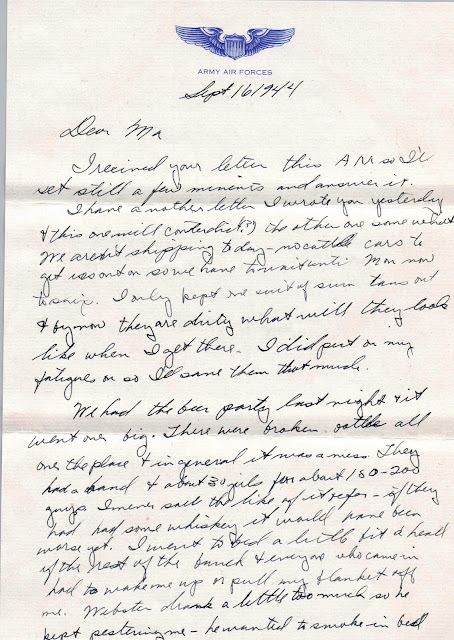 ARMY AIR FORCES
Sept 16 1944
Dear Ma
I received your letter this AM so I'll
set still a few minents and answer it.
I have another letter I wrote you yesterday
& this one will conterdict(?) the other one some what
We arent shipping today - no cattle cars to
get us out on so we have to wait until Mon now
to ship. I only kept one suit of sun tans out
& by now they are dirty what will they look
like when I get there. I did put on my
fatigues on so I'll save them that much.
We had the beer party last night & it
went over big. There were broken bottles all
over the place & in general it was a mess. They
had a band & about 30 girls for about 150-200
guys I never saw the like of it before - if they
had had some whiskey it would have been
worse yet. I went to bed a little bit ahead
of the rest of the bunch & everyone who came in
had to wake me up or pull my blanket off
me. Webster drank a little too much so he
kept pestering me - he wanted to smoke in bed